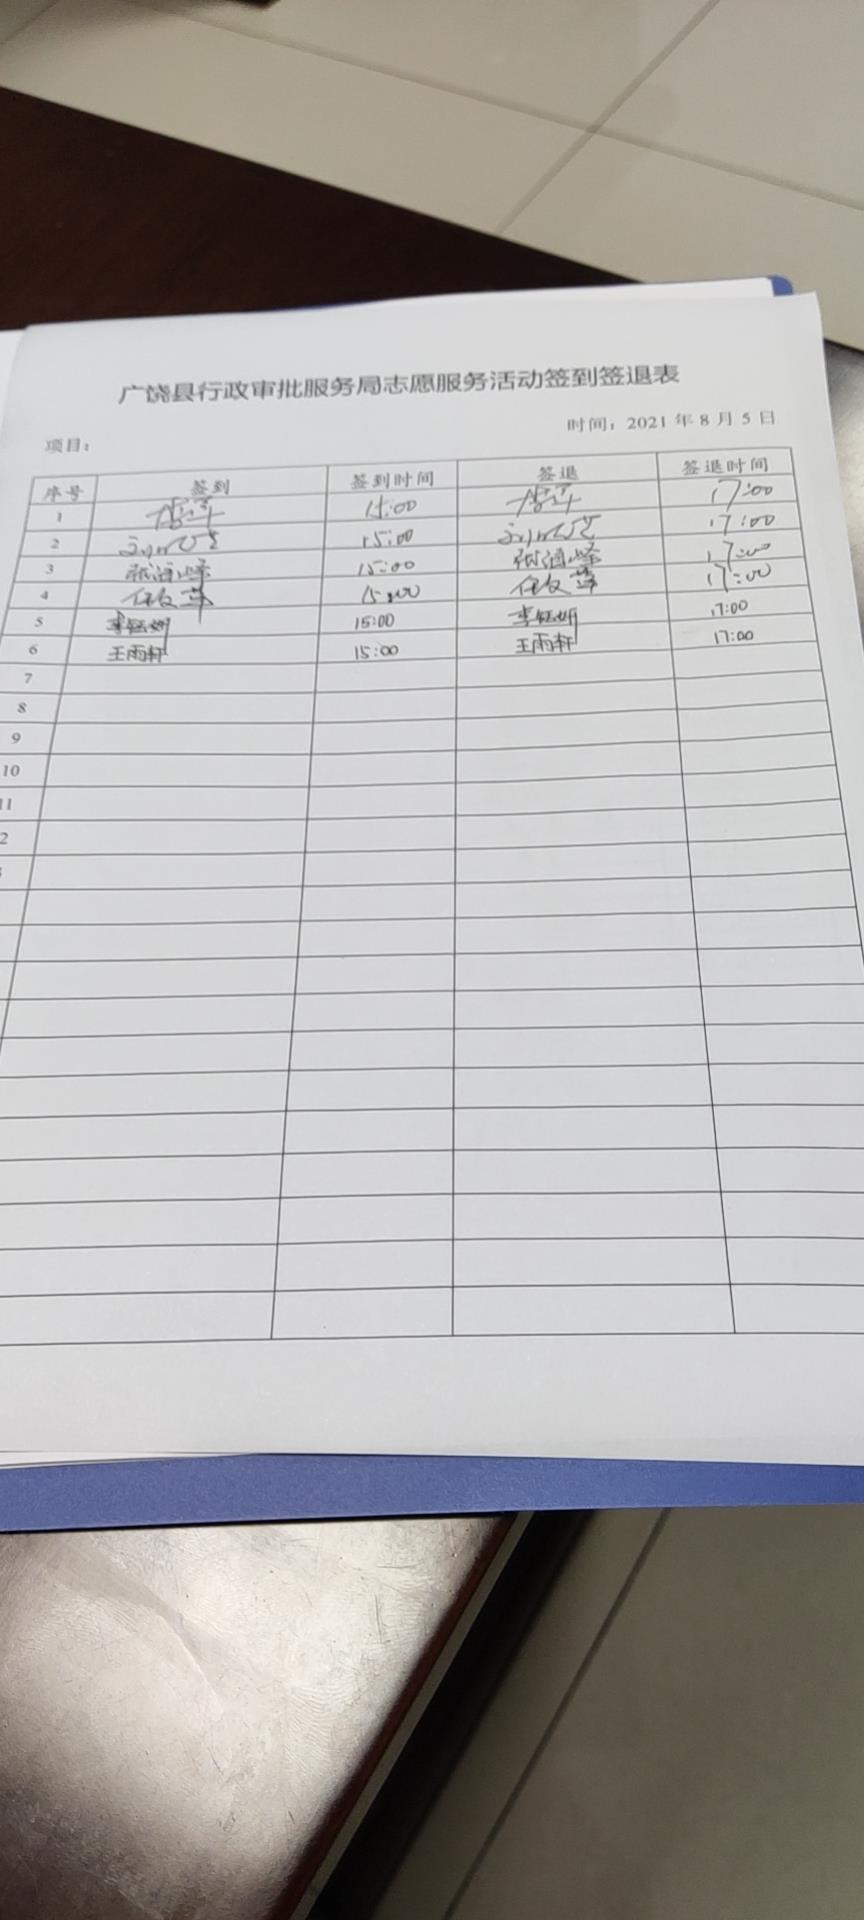 广饶县行政审批服务局志愿服务活动签到签退表
项目： 时间：2021 年 8 月 5 日
序号 签到 签到时间 签退 签退时间
1 15:00 17:00
2 15:00 17:00
3 张海峰 15:00 张海峰 17:00
4 任友萍 15:00 任友萍 17:00
5 李钰妍 15:00 李钰妍 17:00
6 王雨轩 15:00 王雨轩 17:00
7
8
9
10
11
2